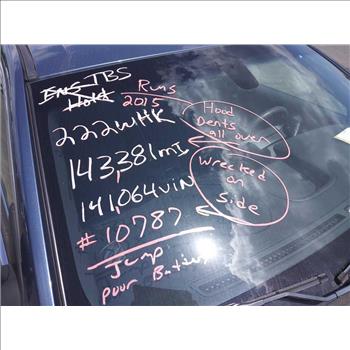 JBS
Eng
Hold
Runs
2015
222WHK
143,381mi
141,064VIN
# 10787
Jump
poor Battery
Hood
Dents
all over
Wrecked
on
Side